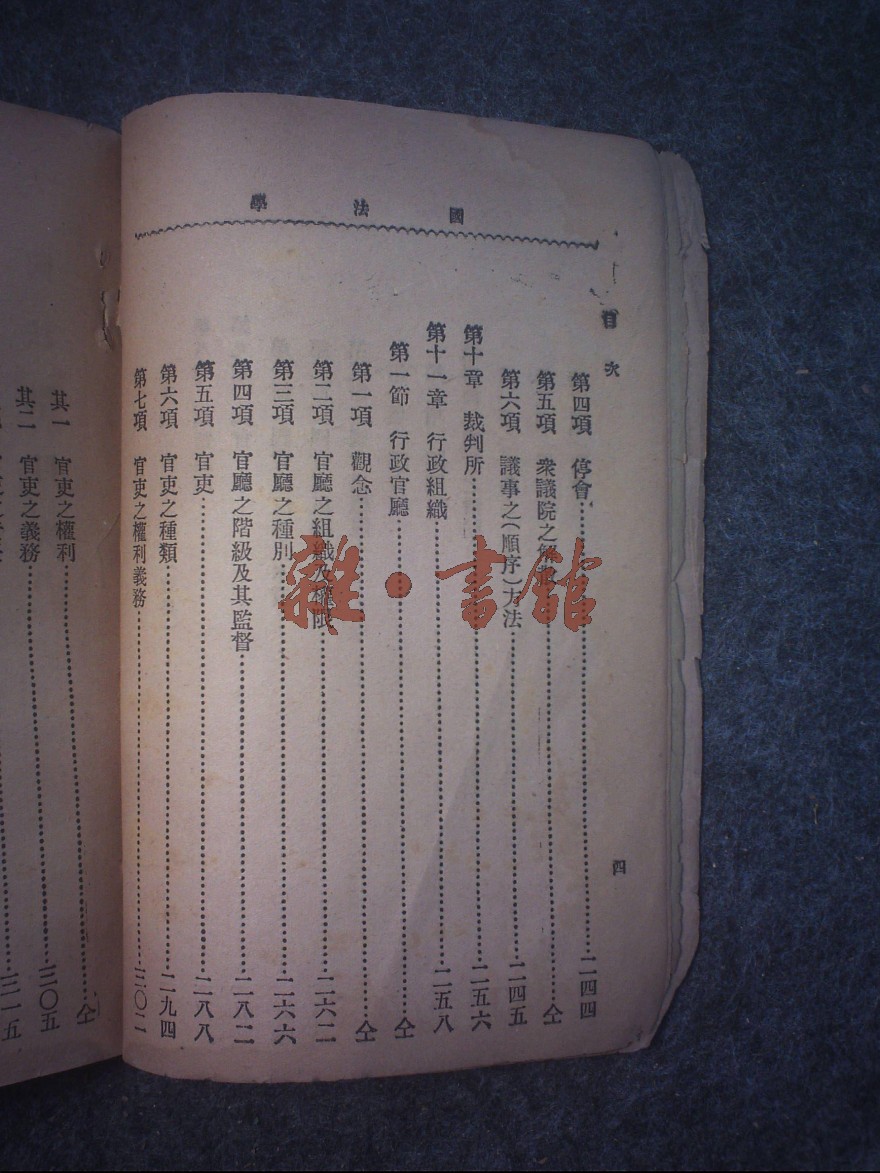 國法學
目次
四
第四項 停會……二四四
第五項 衆議院之解散……仝
第六項 議事之(順序)方法……二四五
第十章 裁判所……二五六
第十一章 行政組織……二五八
第一節 行政官廳……仝
第一項 觀念……仝
第二項 官廳之組織及權限……二六二
第三項 官廳之種別……二六六
第四項 官廳之階級及其監督……二八二
第五項 官吏……二八八
第六項 官吏之種類……二九四
第七項 官吏之權利義務……三〇二
其一 官吏之權利……仝
其二 官吏之義務……三〇五
三一五
雜·書館